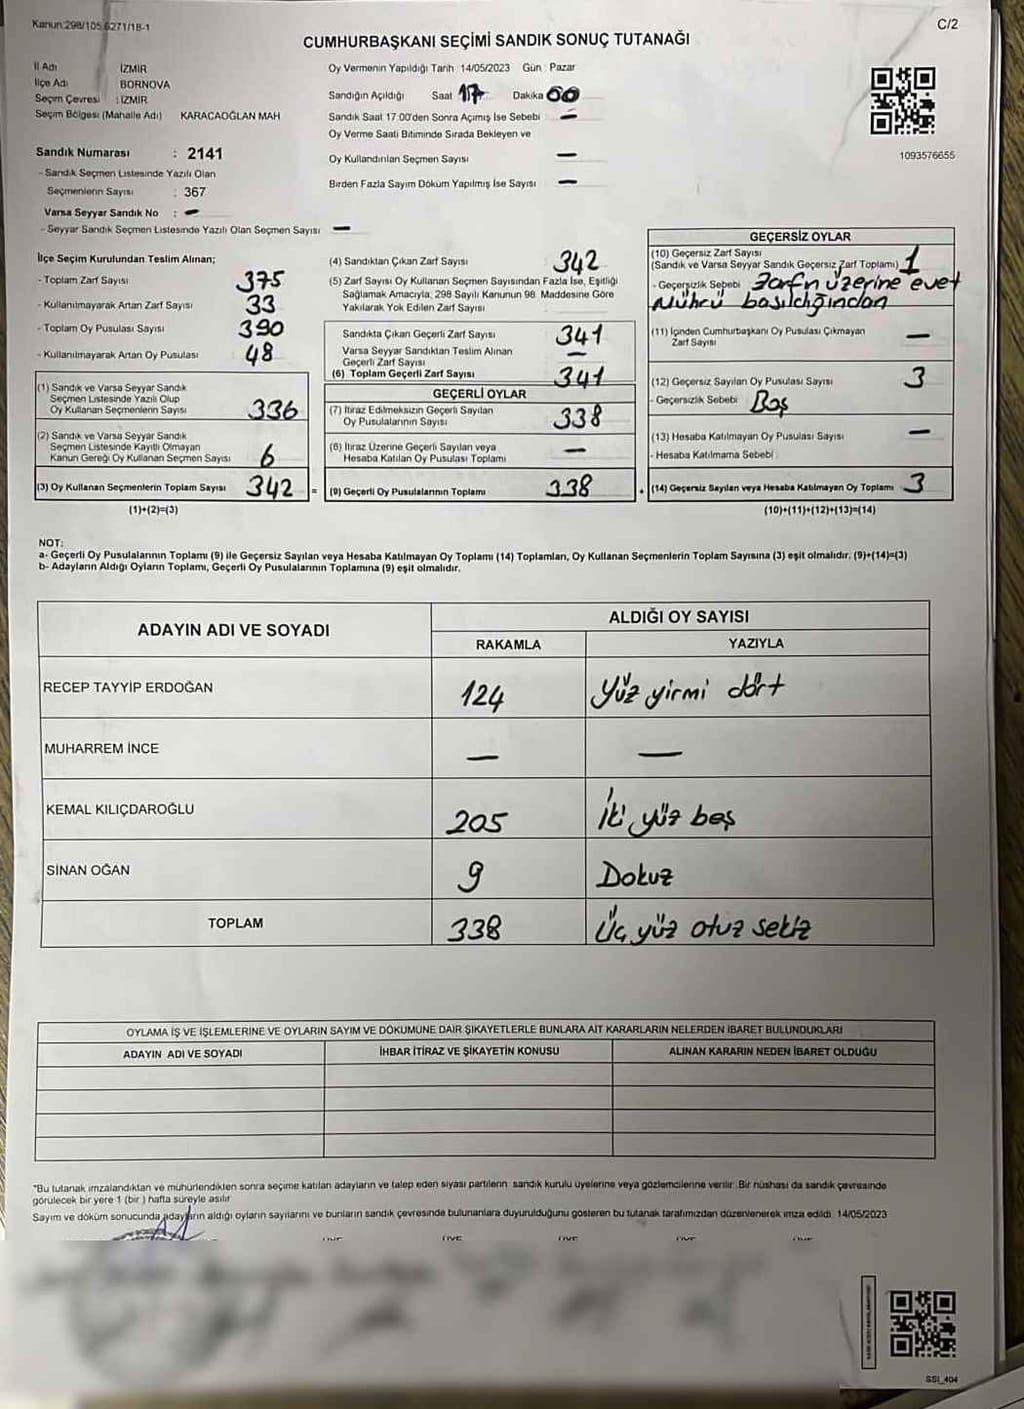 Kanun:298/105 6271/18-1
C/2
CUMHURBAŞKANI SEÇİMİ SANDIK SONUÇ TUTANAĞI
İl Adı İZMİR
İlçe Adı BORNOVA
Seçim Çevresi : İZMİR
Seçim Bölgesi (Mahalle Adı) KARACAOĞLAN MAH
Sandık Numarası : 2141
- Sandık Seçmen Listesinde Yazılı Olan
Seçmenlerin Sayısı : 367
Varsa Seyyar Sandık No : -
- Seyyar Sandık Seçmen Listesinde Yazılı Olan Seçmen Sayısı -
Oy Vermenin Yapıldığı Tarih 14/05/2023 Gün : Pazar
Sandığın Açıldığı Saat 17 Dakika 00
Sandık Saat 17.00'den Sonra Açımış İse Sebebi : -
Oy Verme Saati Bitiminde Sırada Bekleyen ve
Oy Kullandırılan Seçmen Sayısı -
Birden Fazla Sayım Döküm Yapılmış İse Sayısı -
1093576655
İlçe Seçim Kurulundan Teslim Alınan;
- Toplam Zarf Sayısı 375
- Kullanılmayarak Artan Zarf Sayısı 33
- Toplam Oy Pusulası Sayısı 390
- Kullanılmayarak Artan Oy Pusulası 48
(1) Sandık ve Varsa Seyyar Sandık
Seçmen Listesinde Yazılı Olup
Oy Kullanan Seçmenlerin Sayısı 336
(2) Sandık ve Varsa Seyyar Sandık
Seçmen Listesinde Kayıtlı Olmayan
Kanun Gereği Oy Kullanan Seçmen Sayısı 6
(3) Oy Kullanan Seçmenlerin Toplam Sayısı 342 =
(1)+(2)=(3)
(4) Sandıktan Çıkan Zarf Sayısı 342
(5) Zarf Sayısı Oy Kullanan Seçmen Sayısından Fazla İse, Eşitliği
Sağlamak Amacıyla; 298 Sayılı Kanunun 98 Maddesine Göre
Yakılarak Yok Edilen Zarf Sayısı
Sandıkta Çıkan Geçerli Zarf Sayısı 341
Varsa Seyyar Sandıktan Teslim Alınan
Geçerli Zarf Sayısı -
(6) Toplam Geçerli Zarf Sayısı 341
GEÇERLİ OYLAR
(7) İtiraz Edilmeksizin Geçerli Sayılan
Oy Pusulalarının Sayısı 338
(8) İtiraz Üzerine Geçerli Sayılan veya
Hesaba Katılan Oy Pusulası Toplamı -
(9) Geçerli Oy Pusulalarının Toplamı 338 +
GEÇERSİZ OYLAR
(10) Geçersiz Zarf Sayısı
(Sandık ve Varsa Seyyar Sandık Geçersiz Zarf Toplamı) 1
- Geçersizlik Sebebi Zarfın üzerine evet
mührü basıldığından
(11) İçinden Cumhurbaşkanı Oy Pusulası Çıkmayan
Zarf Sayısı -
(12) Geçersiz Sayılan Oy Pusulası Sayısı 3
- Geçersizlik Sebebi Boş
(13) Hesaba Katılmayan Oy Pusulası Sayısı -
- Hesaba Katılmama Sebebi
(14) Geçersiz Sayılan veya Hesaba Katılmayan Oy Toplamı 3
(10)+(11)+(12)+(13)=(14)
NOT:
a- Geçerli Oy Pusulalarının Toplamı (9) ile Geçersiz Sayılan veya Hesaba Katılmayan Oy Toplamı (14) Toplamları, Oy Kullanan Seçmenlerin Toplam Sayısına (3) eşit olmalıdır. (9)+(14)=(3)
b- Adayların Aldığı Oyların Toplamı, Geçerli Oy Pusulalarının Toplamına (9) eşit olmalıdır.
ADAYIN ADI VE SOYADI ALDIĞI OY SAYISI
RAKAMLA YAZIYLA
RECEP TAYYİP ERDOĞAN 124 Yüz yirmi dört
MUHARREM İNCE - -
KEMAL KILIÇDAROĞLU 205 İki yüz beş
SİNAN OĞAN 9 Dokuz
TOPLAM 338 Üç yüz otuz sekiz
OYLAMA İŞ VE İŞLEMLERİNE VE OYLARIN SAYIM VE DÖKÜMÜNE DAİR ŞİKAYETLERLE BUNLARA AİT KARARLARIN NELERDEN İBARET BULUNDUKLARI
ADAYIN ADI VE SOYADI İHBAR İTİRAZ VE ŞİKAYETİN KONUSU ALINAN KARARIN NEDEN İBARET OLDUĞU
"Bu tutanak imzalandıktan ve mühürlendikten sonra seçime katılan adayların ve talep eden siyasi partilerin sandık kurulu üyelerine veya gözlemcilerine verilir. Bir nüshası da sandık çevresinde
görülecek bir yere 1 (bir ) hafta süreyle asılır
Sayım ve döküm sonucunda adayların aldığı oyların sayılarını ve bunların sandık çevresinde bulunanlara duyurulduğunu gösteren bu tutanak tarafımızdan düzenlenerek imza edildi. 14/05/2023
SSI_404